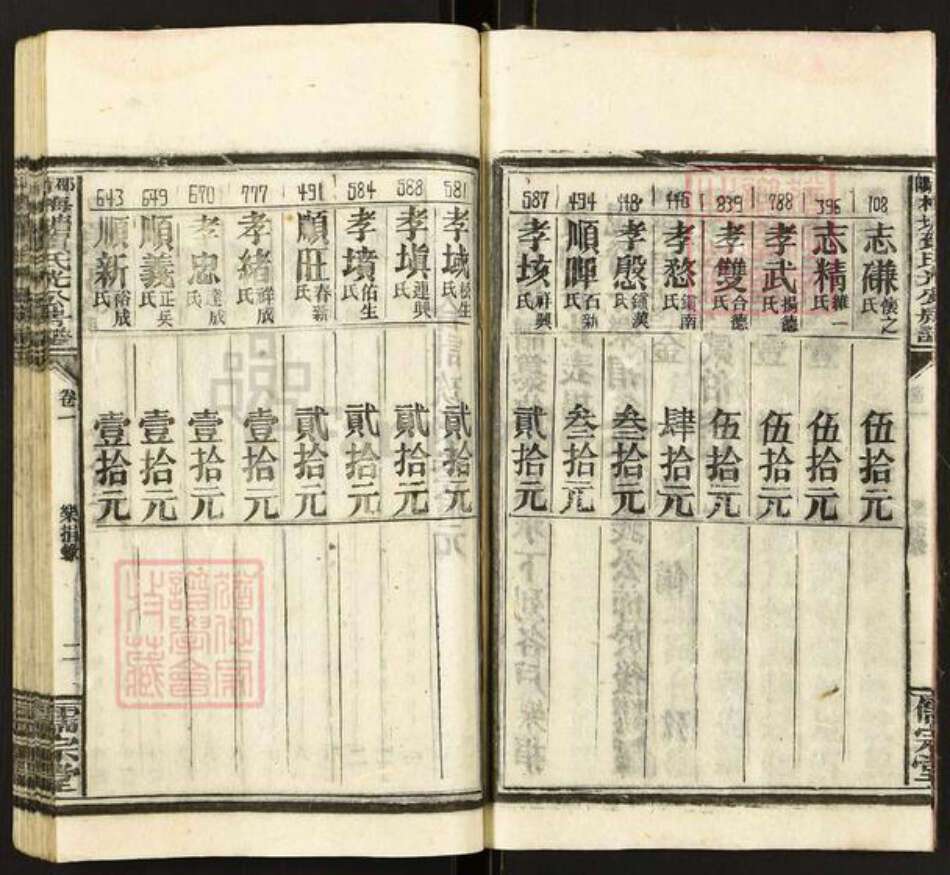 108 志磏氏 懷之 伍拾元
396 志精氏 維一 伍拾元
788 孝武氏 揚德 伍拾元
839 孝雙氏 合德 伍拾元
446 孝愁氏 鎮南 肆拾元
448 孝慇氏 鎮漢 叁拾元
494 順暉氏 石新 叁拾元
587 孝垓氏 祥興 貳拾元
581 孝域氏 生 貳拾元
588 孝塡氏 連興 貳拾元
584 孝墳氏 佑生 貳拾元
491 順旺氏 春新 貳拾元
777 孝緒氏 祥成 壹拾元
670 孝忠氏 達成 壹拾元
649 順義氏 正吳 壹拾元
643 順新氏 裕成 壹拾元
卷一
樂捐錄
二
儒宗堂
儒宗堂
譜學會
收藏